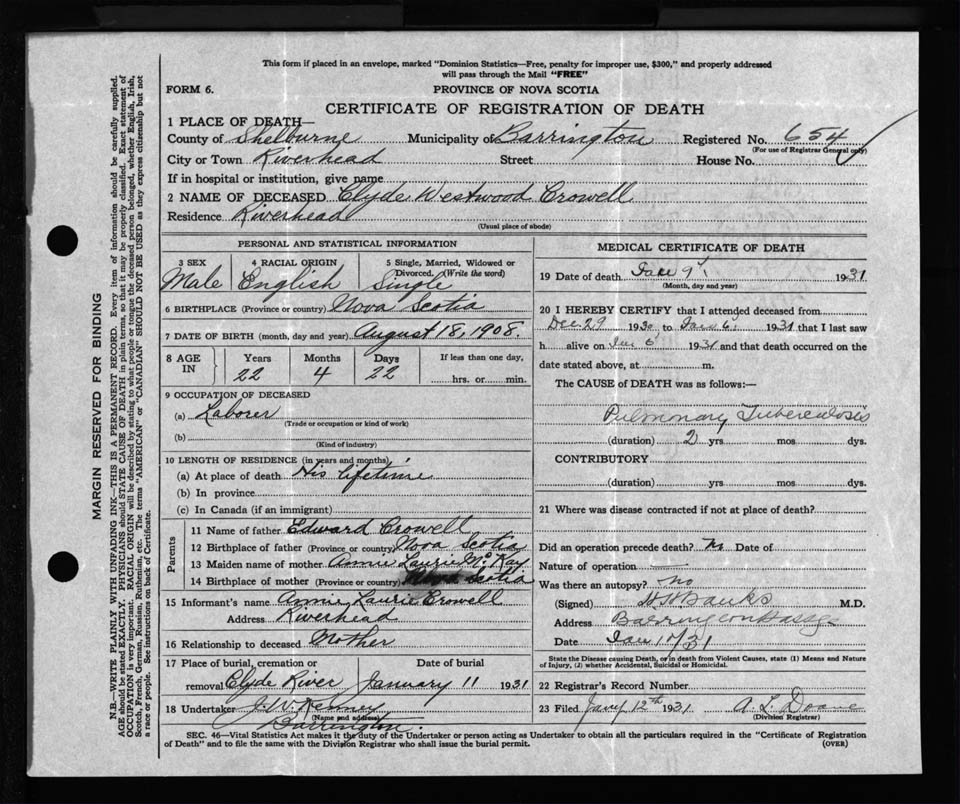 This form if placed in an envelope, marked "Dominion Statistics—Free, penalty for improper use, $300," and properly addressed
will pass through the Mail "FREE"
FORM 6. PROVINCE OF NOVA SCOTIA
CERTIFICATE OF REGISTRATION OF DEATH
1 PLACE OF DEATH—
County of Shelburne Municipality of Barrington Registered No. 654
(For use of Registrar General only)
City or Town Riverhead Street House No.
If in hospital or institution, give name
2 NAME OF DECEASED Clyde Westwood Crowell
Residence Riverhead
(Usual place of abode)
PERSONAL AND STATISTICAL INFORMATION
3 SEX 4 RACIAL ORIGIN 5 Single, Married, Widowed or
Divorced. (Write the word)
Male English Single
6 BIRTHPLACE (Province or country) Nova Scotia
7 DATE OF BIRTH (month, day and year) August 18, 1908.
8 AGE IN Years Months Days If less than one day,
22 4 22 hrs. or min.
9 OCCUPATION OF DECEASED
(a) Laborer
(Trade or occupation or kind of work)
(b)
(Kind of industry)
10 LENGTH OF RESIDENCE (in years and months)
(a) At place of death His lifetime
(b) In province
(c) In Canada (if an immigrant)
Parents
11 Name of father Edward Crowell
12 Birthplace of father (Province or country) Nova Scotia
13 Maiden name of mother Annie Laurie McKay
14 Birthplace of mother (Province or country) Nova Scotia
15 Informant's name Annie Laurie Crowell
Address Riverhead
16 Relationship to deceased Mother
17 Place of burial, cremation or Date of burial
removal Clyde River January 11 1931
18 Undertaker J. W. Kenney
(Name and address)
Barrington.
MEDICAL CERTIFICATE OF DEATH
19 Date of death 9 1931
(Month, day and year)
20 I HEREBY CERTIFY that I attended deceased from
Dec. 29 1930 to Jan 6. 1931 that I last saw
h alive on Jan 6 1931 and that death occurred on the
date stated above, at m.
The CAUSE of DEATH was as follows:—
Pulmonary Tuberculosis
(duration) 2 yrs mos dys.
CONTRIBUTORY
(duration) yrs mos dys.
21 Where was disease contracted if not at place of death?
Did an operation precede death? No Date of
Nature of operation —
Was there an autopsy? no
(Signed) Banks M.D.
Address Barrington Passage
Date Jan 10/31
State the Disease causing Death, or in death from Violent Causes, state (1) Means and Nature
of Injury, (2) whether Accidental, Suicidal or Homicidal.
22 Registrar's Record Number
23 Filed Jany 12th 1931 A. L. Doane
(Division Registrar)
SEC. 46—Vital Statistics Act makes it the duty of the Undertaker or person acting as Undertaker to obtain all the particulars required in the "Certificate of Registration
of Death" and to file the same with the Division Registrar who shall issue the burial permit. (OVER)
MARGIN RESERVED FOR BINDING
N.B.—WRITE PLAINLY WITH UNFADING INK—THIS IS A PERMANENT RECORD. Every item of information should be carefully supplied.
AGE should be stated EXACTLY. PHYSICIANS should STATE CAUSE OF DEATH in plain terms, so that it may be properly classified. Exact statement of
OCCUPATION is very important. RACIAL ORIGIN will be described by stating to what people or tongue the deceased person belonged, whether English, Irish,
Scotch, French, German, Russian, Ruthenian, etc. The terms "AMERICAN" or "CANADIAN" SHOULD NOT BE USED as they express citizenship but not
a race or people. See instructions on back of Certificate.